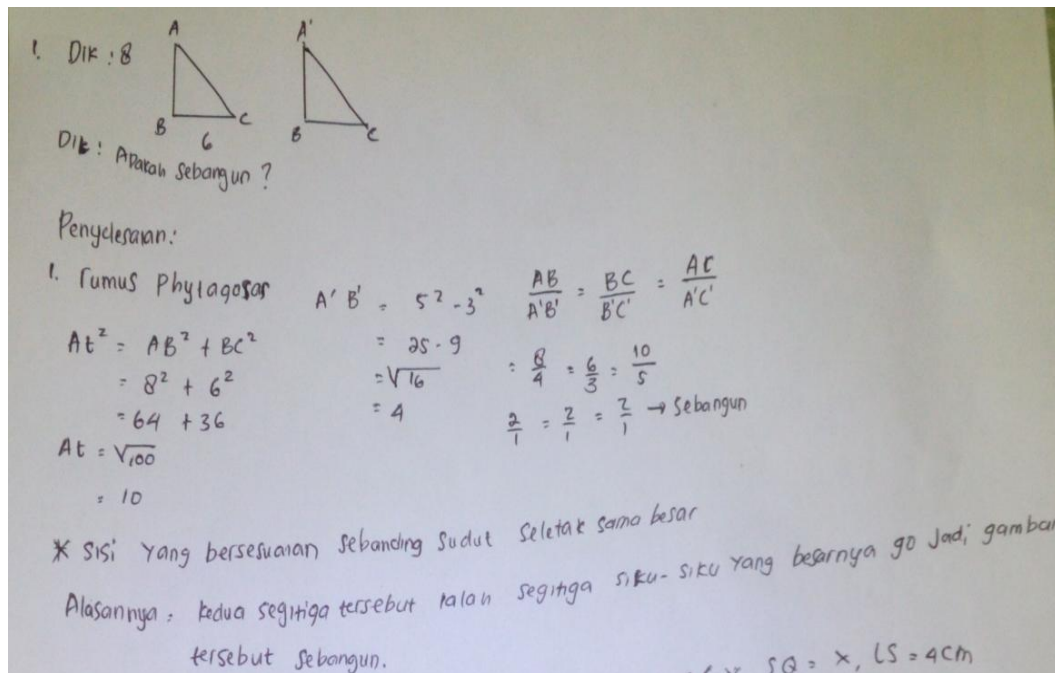 1. Dik : 8
A
B
6
C
A'
B
C
Dik : Apakah sebangun ?
Penyelesaian:
1. rumus Phytagosar
At² = AB² + BC²
= 8² + 6²
= 64 + 36
At = √100
= 10
A' B' = 5² - 3²
= 25 - 9
= √16
= 4
AB/A'B' = BC/B'C' = AC/A'C'
= 8/4 = 6/3 = 10/5
2/1 = 2/1 = 2/1 → sebangun
* Sisi yang bersesuaian sebanding sudut seletak sama besar
Alasannya : kedua segitiga tersebut ialah segitiga siku-siku yang besarnya 90 Jadi, gambar
tersebut sebangun.
SQ = x, LS = 4cm